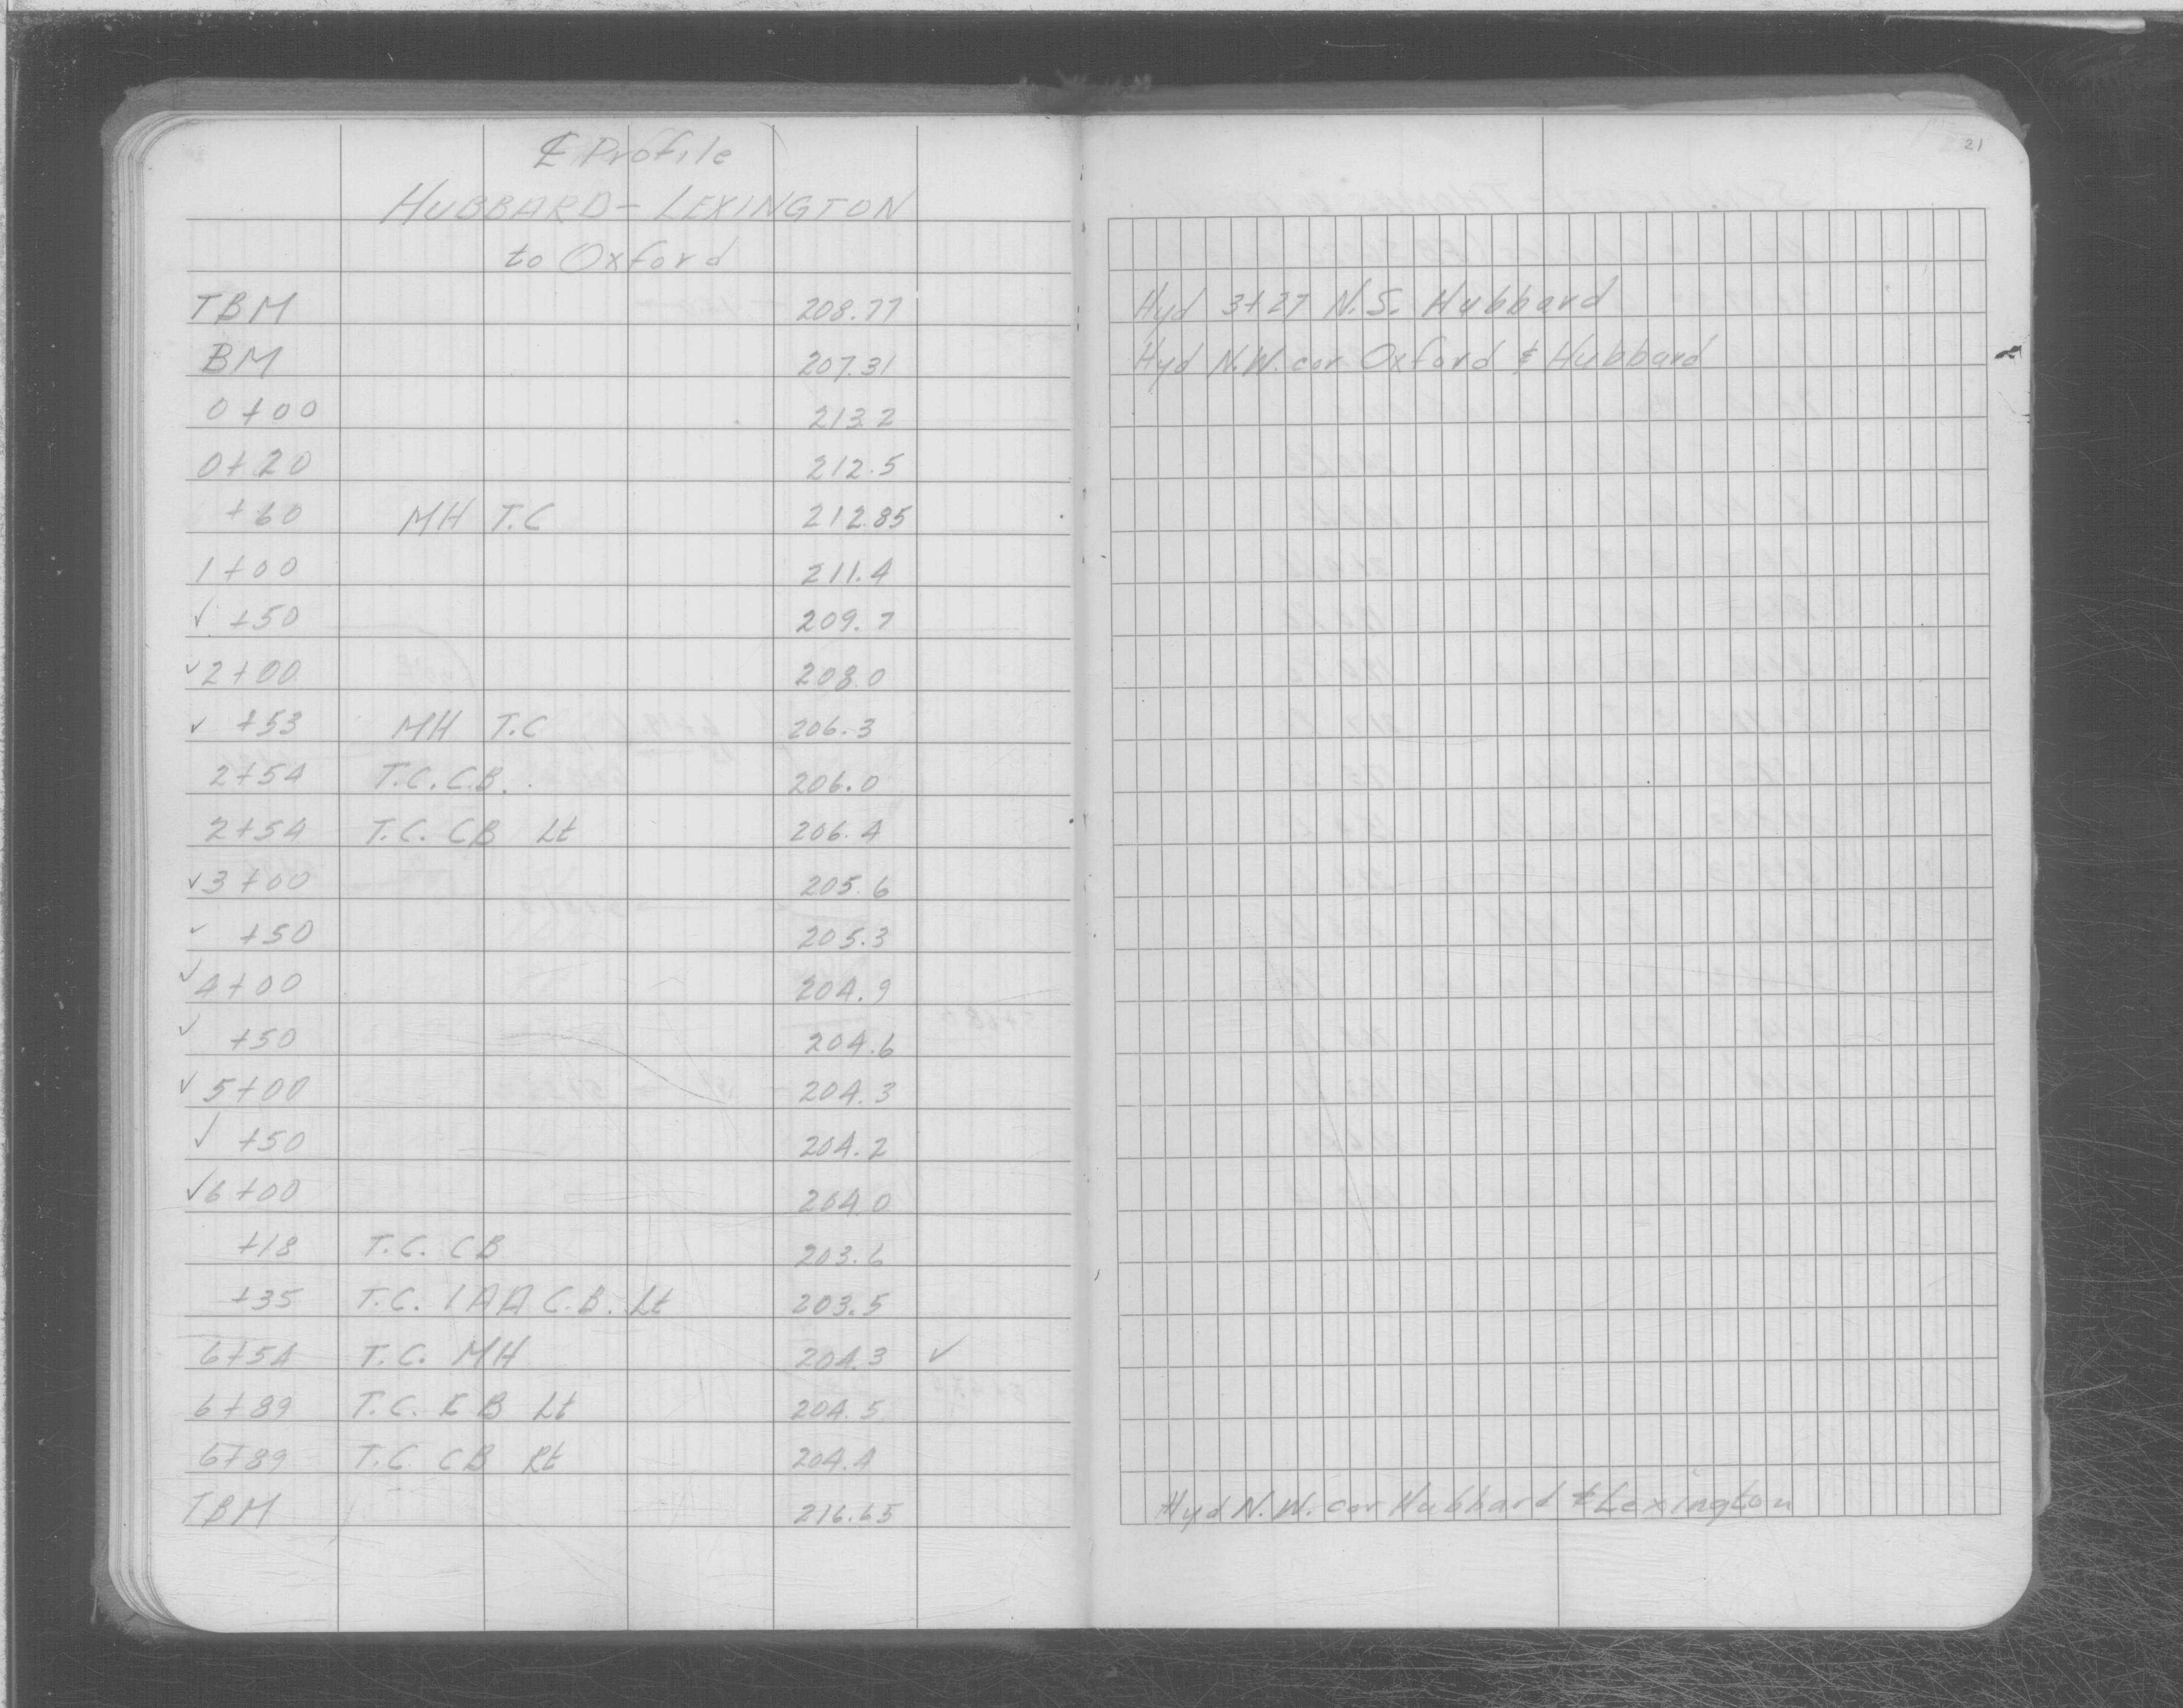 ℄ Profile
HUBBARD - LEXINGTON
to Oxford
TBM 208.77 Hyd 3+27 N.S. Hubbard
BM 207.31 Hyd N.W. cor Oxford & Hubbard
0+00 213.2
0+20 212.5
+60 MH T.C 212.85
1+00 211.4
✓ +50 209.7
✓ 2+00 208.0
✓ +53 MH T.C 206.3
2+54 T.C. C.B. 206.0
2+54 T.C. CB Lt 206.4
✓ 3+00 205.6
✓ +50 205.3
✓ 4+00 204.9
✓ +50 204.6
✓ 5+00 204.3
✓ +50 204.2
✓ 6+00 204.0
+18 T.C. CB 203.6
+35 T.C. 1AA C.B. Lt 203.5
6+54 T.C. MH 204.3 ✓
6+89 T.C. CB Lt 204.5
6+89 T.C. CB Rt 204.4
TBM 216.65 Hyd N.W. cor Hubbard & Lexington
21